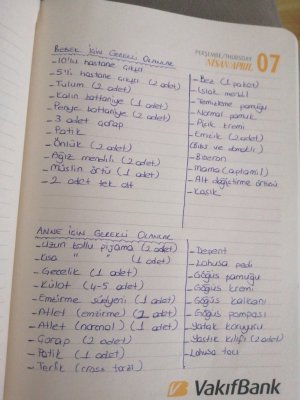 PERŞEMBE/THURSDAY
NİSAN/APRIL 07
BEBEK İÇİN GEREKLİ OLANLAR
- 10'lu hastane çıkışı
- 5'li hastane çıkışı (2 adet)
- Tulum (2 adet)
- Kalın battaniye (1 adet)
- Penye battaniye (2 adet)
- 3 adet çorap
- Patik
- Önlük (2 adet)
- Ağız mendili (2 adet)
- Müslin örtü (1 adet)
- 2 adet tek alt
- Bez (1 paket)
- Islak mendil
- Temizleme pamuğu
- Normal pamuk
- Pişik kremi
- Emzik (2 adet)
(Bibs ve damaklı)
- Biberon
- Mama (aptamil)
- Alt değiştirme örtüsü
- Kaşık
ANNE İÇİN GEREKLİ OLANLAR
- Uzun kollu pijama (2 adet)
- Kısa " " (1 adet)
- Gecelik (1 adet)
- Külot (4-5 adet)
- Emzirme sütyeni (1 adet)
- Atlet (emzirme) (2 adet)
- Atlet (normal) (1 adet)
- Çorap (2 adet)
- Patik (1 adet)
- Terlik (cross tarzı)
- Depent
- Lohusa pedi
- Göğüs pamuğu
- Göğüs kremi
- Göğüs kalkanı
- Göğüs pompası
- Yatak koruyucu
- Yastık kılıfı (2 adet)
- Lohusa tacı
VakıfBank